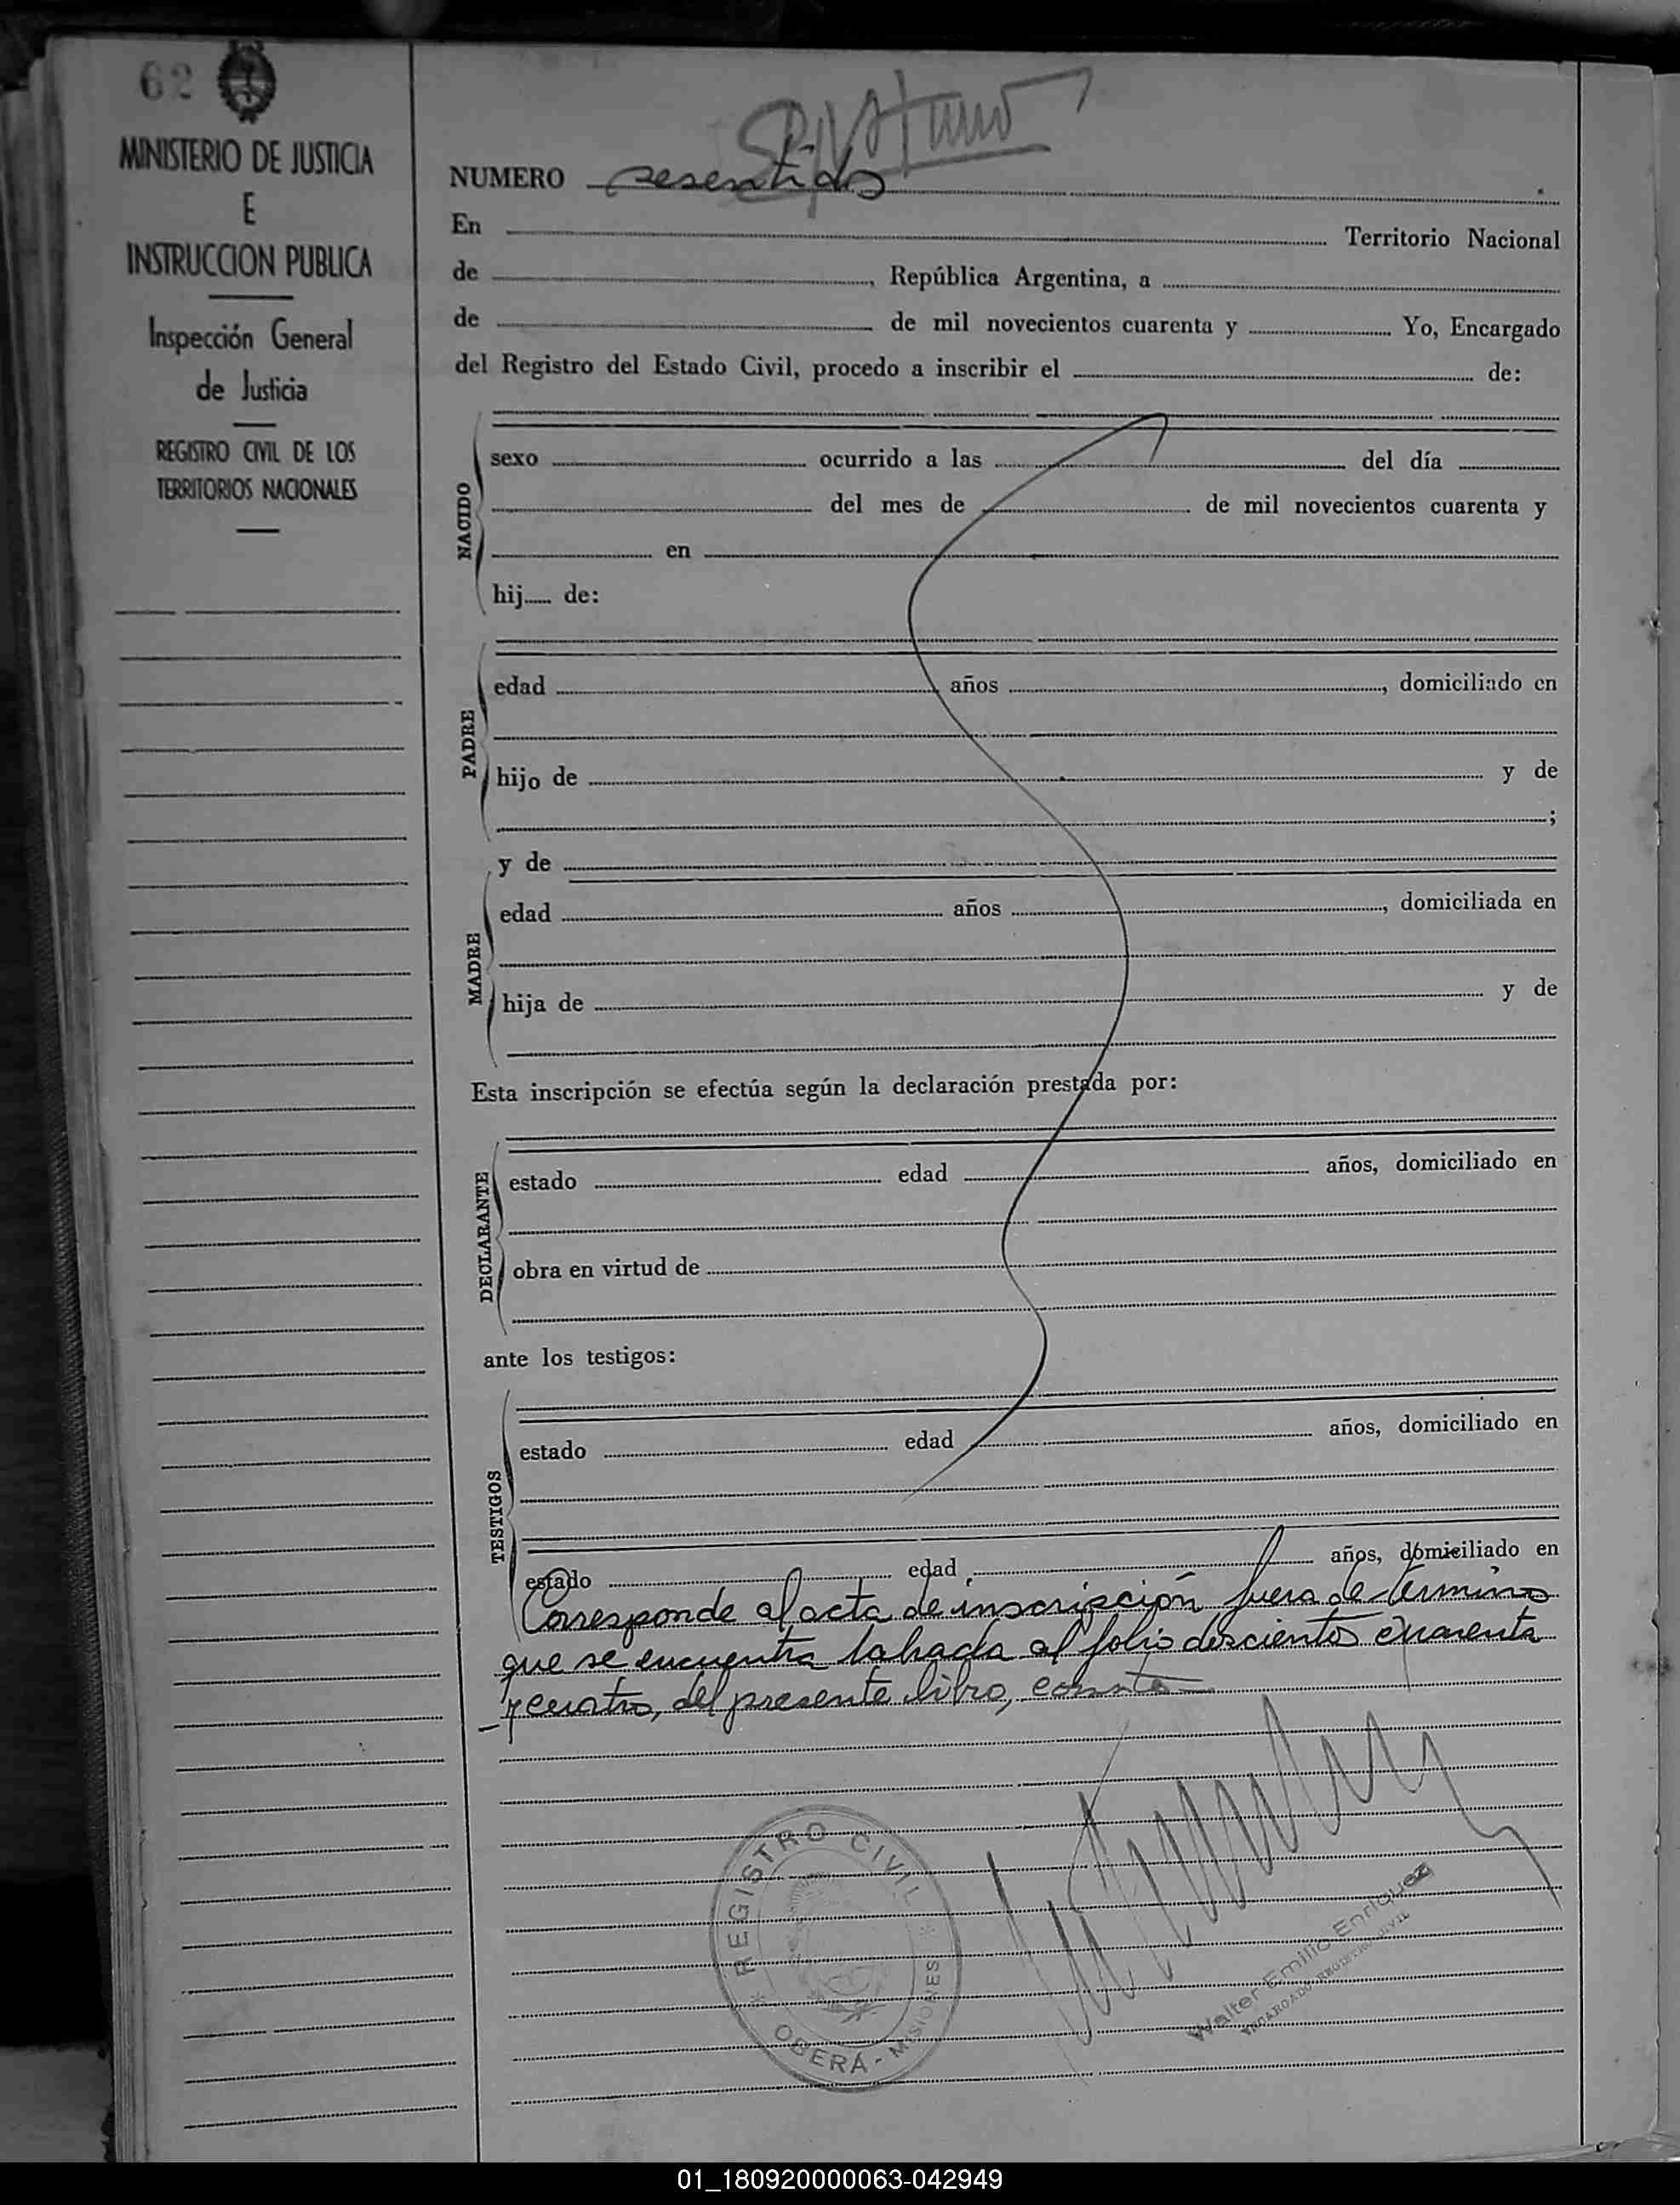 62
MINISTERIO DE JUSTICIA
E
INSTRUCCION PUBLICA
Inspección General
de Justicia
REGISTRO CIVIL DE LOS
TERRITORIOS NACIONALES
NUMERO sesentidos
En Territorio Nacional
de , República Argentina, a
de de mil novecientos cuarenta y Yo, Encargado
del Registro del Estado Civil, procedo a inscribir el de:
NACIDO
sexo ocurrido a las del día
del mes de de mil novecientos cuarenta y
en
hij...... de:
PADRE
edad años , domiciliado en
hijo de y de
;
y de
MADRE
edad años , domiciliada en
hija de y de
Esta inscripción se efectúa según la declaración prestada por:
DECLARANTE
estado edad años, domiciliado en
obra en virtud de
ante los testigos:
TESTIGOS
estado edad años, domiciliado en
estado edad años, domiciliado en
Corresponde al acta de inscripción fuera de termino
que se encuentra labrada al folio doscientos cuarenta
y cuatro, del presente libro, conste
REGISTRO CIVIL
OBERÁ - MISIONES
Walter Emilio Enriquez
ENCARGADO REGISTRO CIVIL
01_180920000063-042949